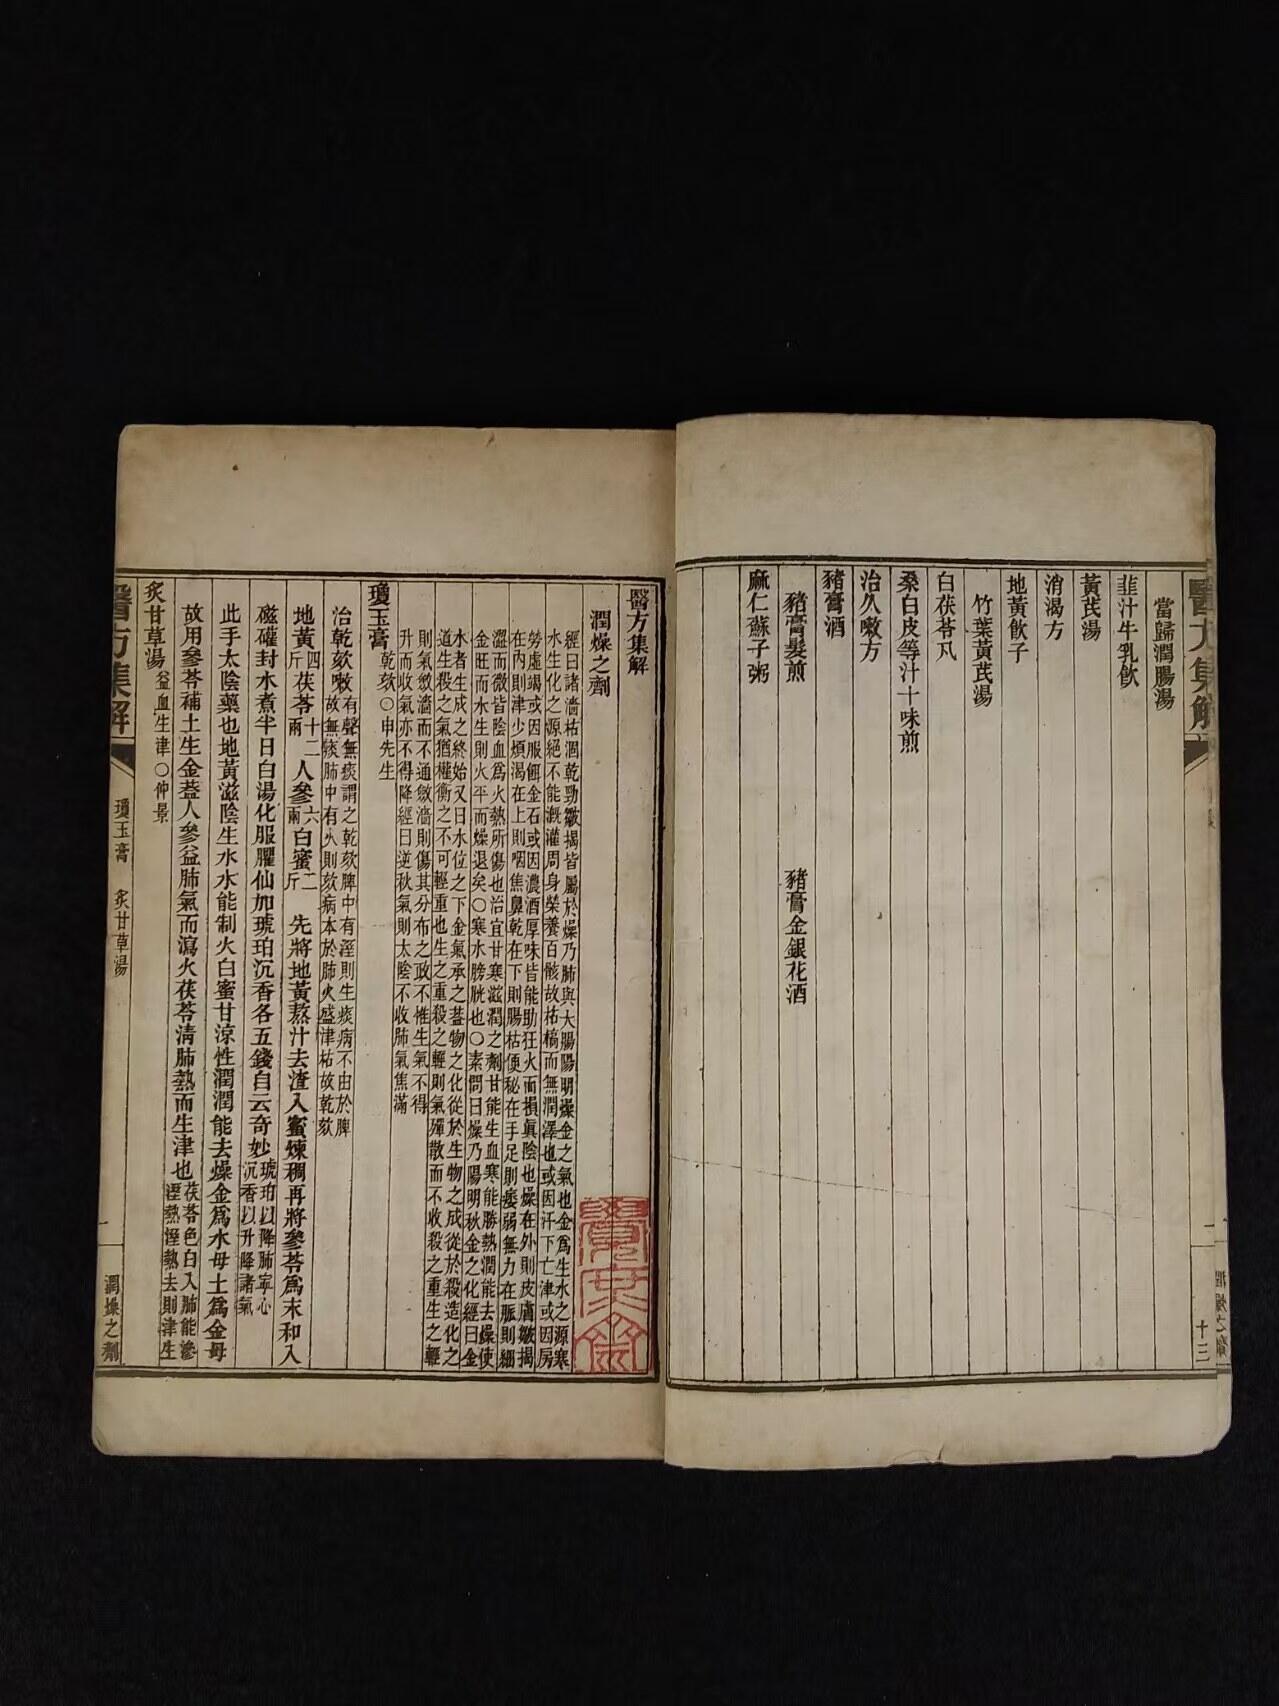 醫方集解
十三
當歸潤腸湯
韭汁牛乳飮
黃芪湯
消渴方
地黃飮子
竹葉黃芪湯
白茯苓凡
桑白皮等汁十味煎
治久嗽方
豬膏酒
豬膏髮煎　豬膏金銀花酒
麻仁蘇子粥
醫方集解
潤燥之劑
經曰諸濇枯涸乾勁皺揭皆屬於燥乃肺與大腸陽明燥金之氣也金爲生水之源寒
水生化之源絕不能漑灌周身榮養百骸故枯槁而無潤澤也或因汗下亡津或因房
勞虛竭或因服餌金石或因濃酒厚味皆能助狂火而損眞陰也燥在外則皮膚皺揭
在內則津少煩渴在上則咽焦鼻乾在下則腸枯便秘在手足則痿弱無力在脈則細
澀而微皆陰血爲火熱所傷也治宜甘寒滋潤之劑甘能生血寒能勝熱潤能去燥使
金旺而水生則火平而燥退矣○寒水膀胱也○素問曰燥乃陽明秋金之化經曰金
水者生成之終始又曰水位之下金氣承之葢物之化從於生物之成從於殺造化之
道生殺之氣猶權衡之不可輕重也生之重殺之輕則氣殫散而不收殺之重生之輕
則氣斂濇而不通斂濇則傷其分布之政不惟生氣不得
升而收氣亦不得降經曰逆秋氣則太陰不收肺氣焦滿
瓊玉膏
乾欬○申先生
治乾欬嗽
有聲無痰謂之乾欬脾中有溼則生痰病不由於脾
故無痰肺中有火則欬病本於肺火盛津枯故乾欬
地黃四斤茯苓十二兩人參六兩白蜜二斤　先將地黃熬汁去渣入蜜煉稠再將參苓爲末和入
磁礶封水煮半日白湯化服臞仙加琥珀沉香各五錢自云奇妙
琥珀以降肺寧心
沉香以升降諸氣
此手太陰藥也地黃滋陰生水水能制火白蜜甘涼性潤潤能去燥金爲水母土爲金母
故用參苓補土生金葢人參益肺氣而瀉火茯苓清肺熱而生津也
茯苓色白入肺能滲
溼熱溼熱去則津生
炙甘草湯
益血生津○仲景
醫方集解
瓊玉膏　炙甘草湯
一
潤燥之劑